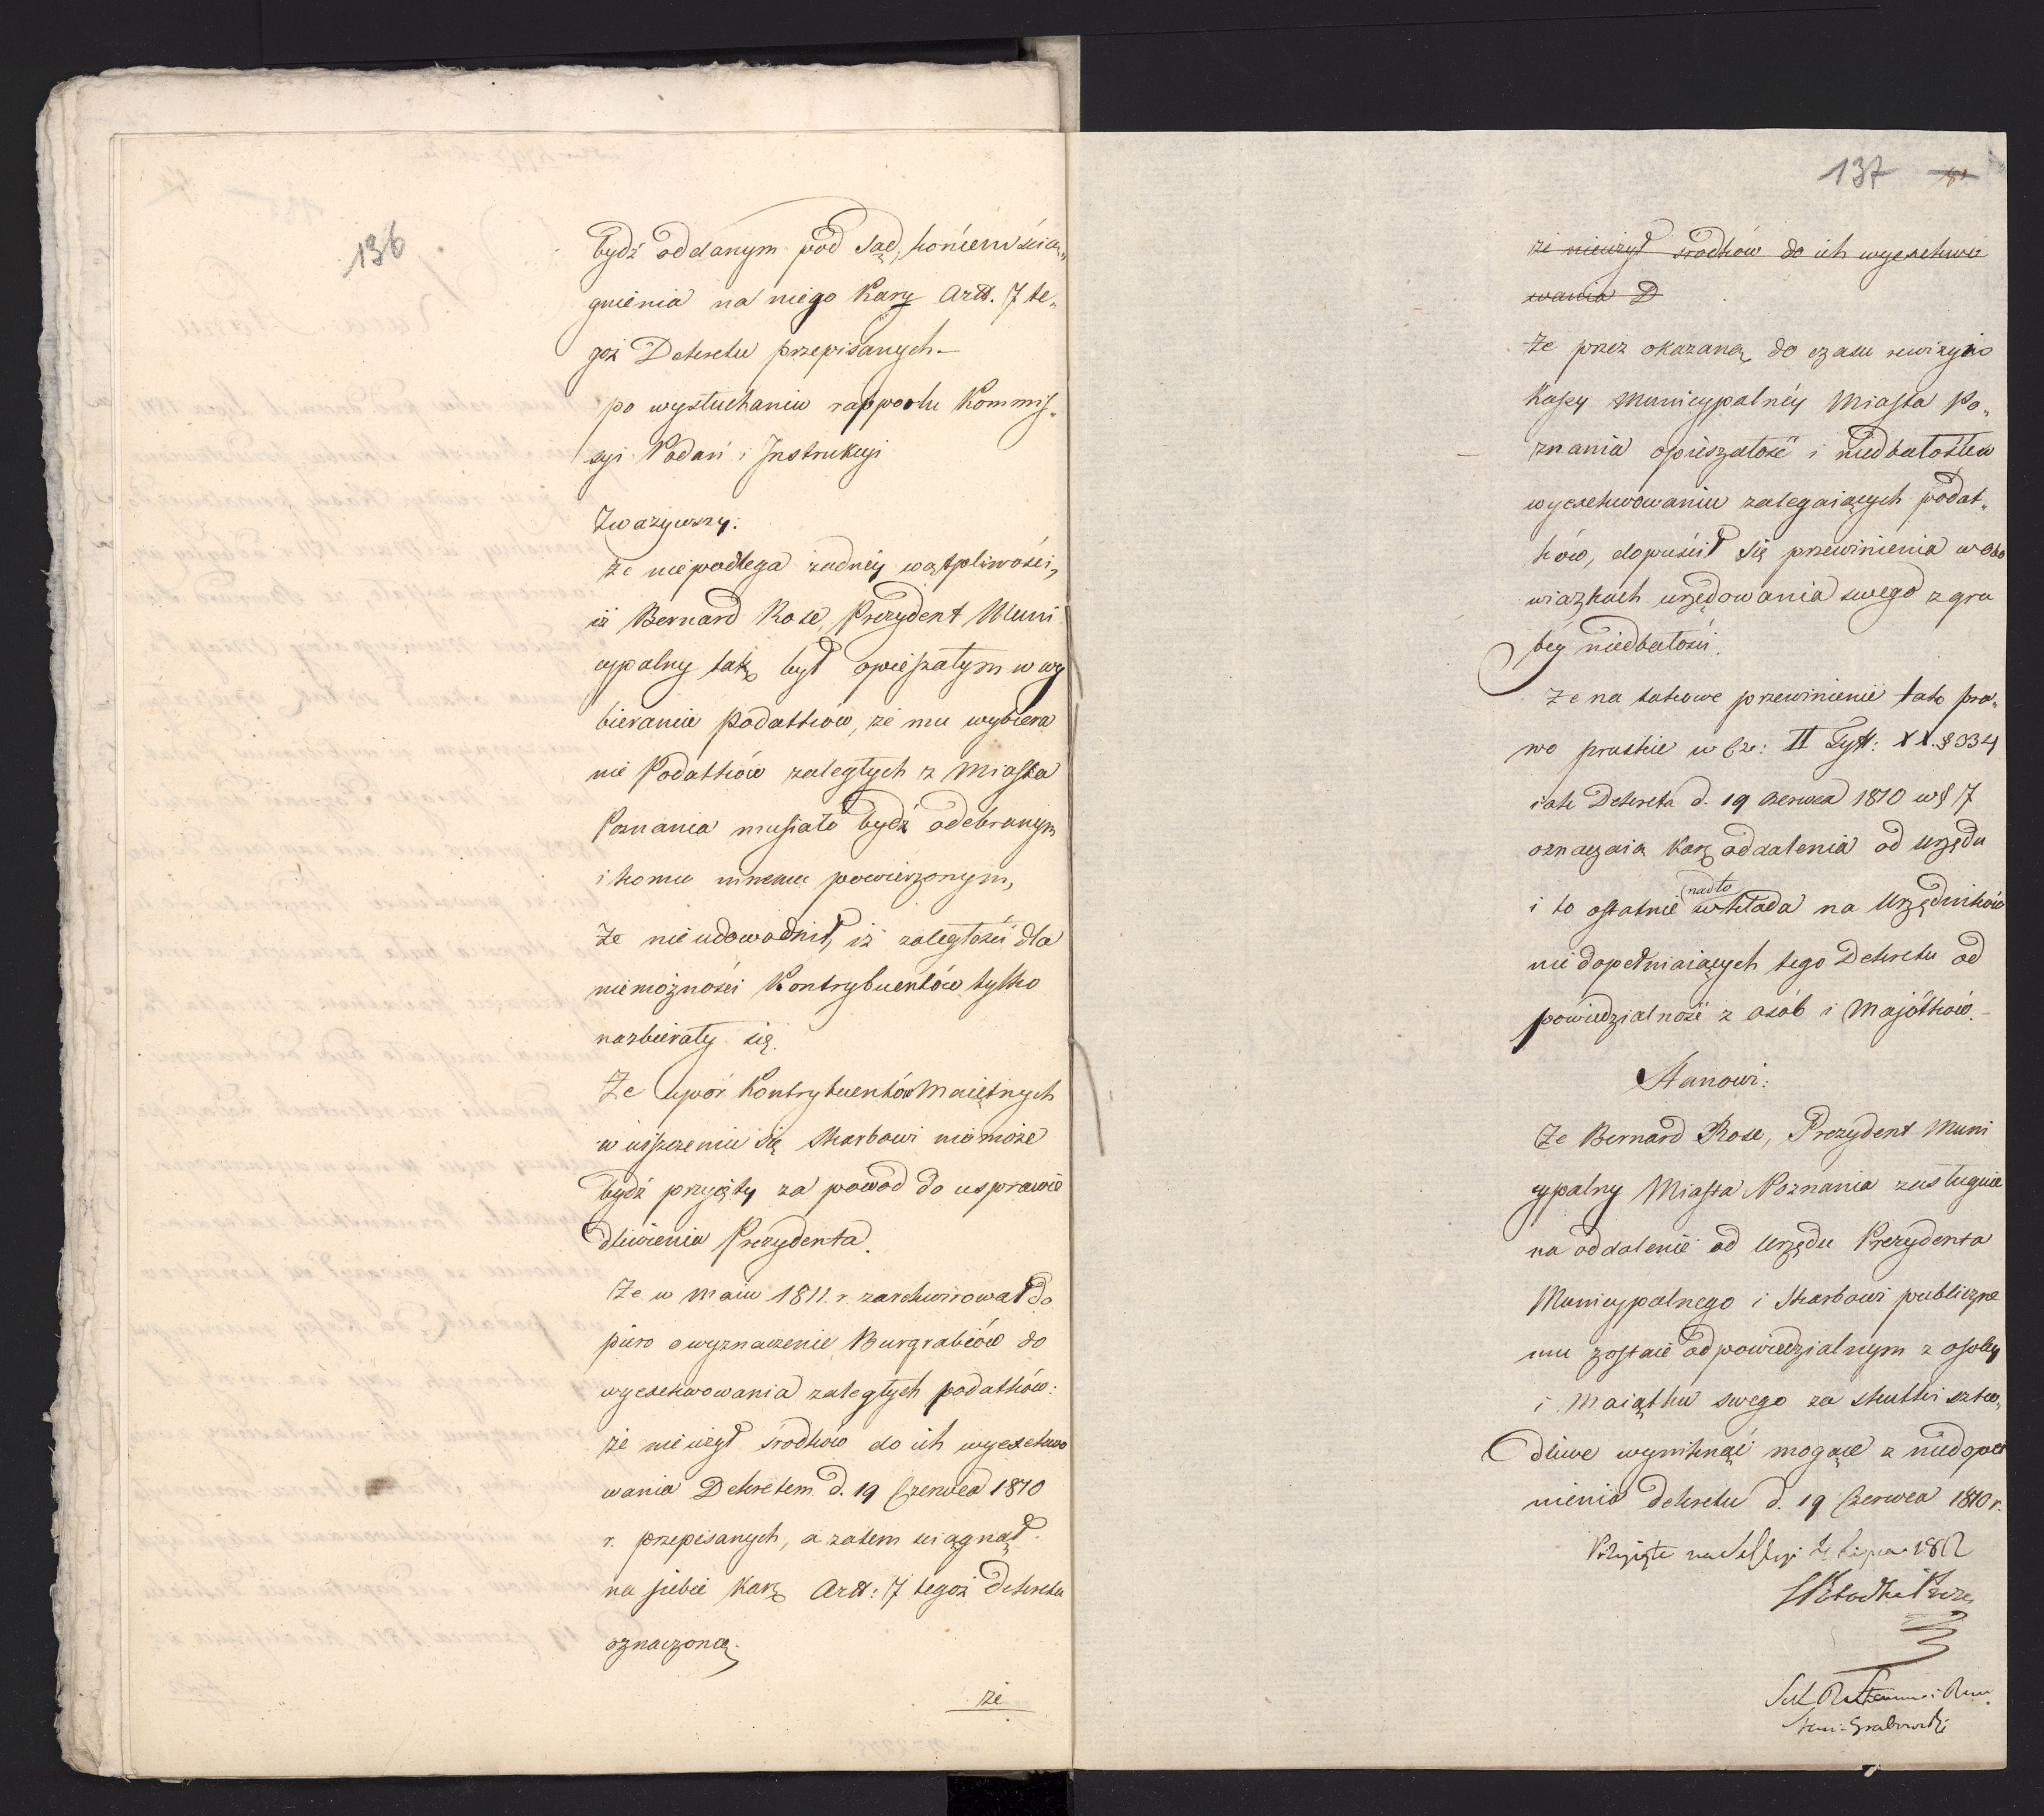 136
bydź oddanym pod Sąd, końcem ścią„
gnienia na niego Kary Artt. 7 te„
goż Dekretu przepisanych.—
po wysłuchaniu rapportu Kommis„
syi Podań i Instrukcyi
Zważywszy:
że niepodlega żadney wątpliwości,
iż Bernard Rose, Prezydent Muni
cypalny tak był opieszałym w wy
bieranie Podatków, że mu wybiera
nie Podatków zaległych z Miasta
Poznania musiało bydź odebranym
i komu innemu powierzonym,
Że nieudowodnił, iż zaległości dla
niemożności Kontrybuentów tylko
nazbierały się.
Że upór Kontrybuentów Maiętnych
w uiszczeniu się Skarbowi niemoże
bydź przyięty za powód do usprawie
dliwienia Prezydenta.
Że w Maiu 1811. r. zarekwirował do
piero o wyznaczenie Burgrabiów do
wyexekwowania zaległych podatków:
że nieużył środków do ich wyexekwo
wania Dekretem d. 19 Czerwca 1810
r. przepisanych, a zatem ściągnął
na siebie karę Artt: 7 tegoż Dekretu
oznaczoną.
że
137 81
że nieużył środków do ich wyexekwo
wania D
Że przez okazaną do czasu rewizyi
Kassy Municypalnéy Miasta Po„
znania opieszałość i niedbałość w
wyexekwowaniu zalegaiących podat„
ków, dopuścił się przewinienia w obo
wiązkach urzędowania swego z gru
béy niedbałości.
Że na takowe przewinienie tak pra„
wo pruskie w Cze: II Tytt: XX. § 334
iak Dekreta d. 19 Czerwca 1810 w § 7
oznaczaią karę oddalenia od Urzędu
i to ostatnie nadto wkłada na Urzędników
nie dopełniaiących tego Dekretu od
powiedzialność z osób i Majątków.—
Stanowi:
Że Bernard Rose, Prezydent Muni
cypalny Miasta Poznania zasługuie
na oddalenie od Urzędu Prezydenta
Municypalnego i Skarbowi publiczne
mu zostaie odpowiedzialnym z osoby
i Maiątku swego za skutki szko„
dliwe wyniknąć mogące z niedopeł
nienia dekretu d. 19 Czerwca 1810 r.
Przyięte na Sessyi 4 Lipca 1812
Grabowski